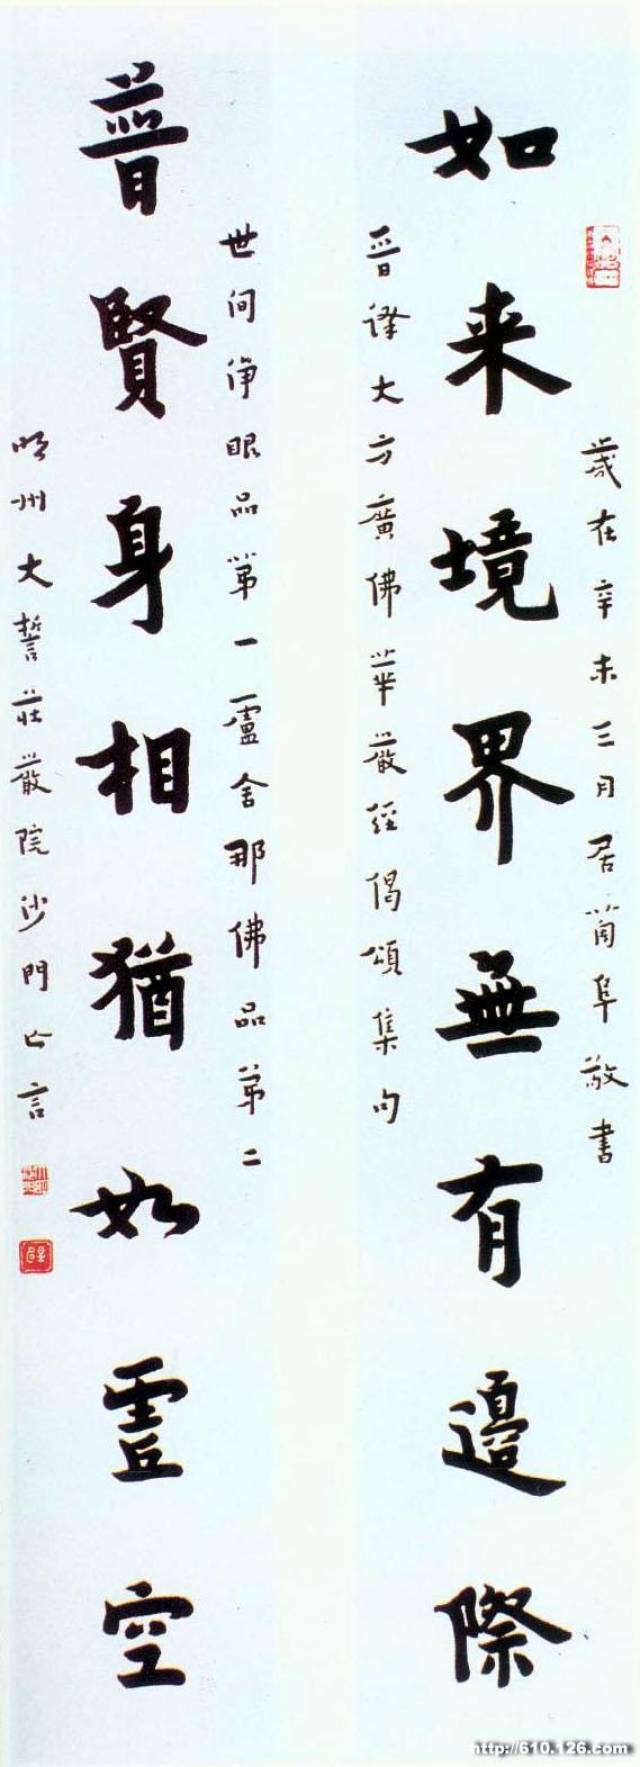 歲在辛未三月居阜敬書
如来境界無有邊際
晉譯大方廣佛華嚴經偈頌集句
世间淨眼品第一盧舍那佛品第二
普賢身相猶如虛空
明州大誓莊嚴院沙門亡言
http://610.126.com